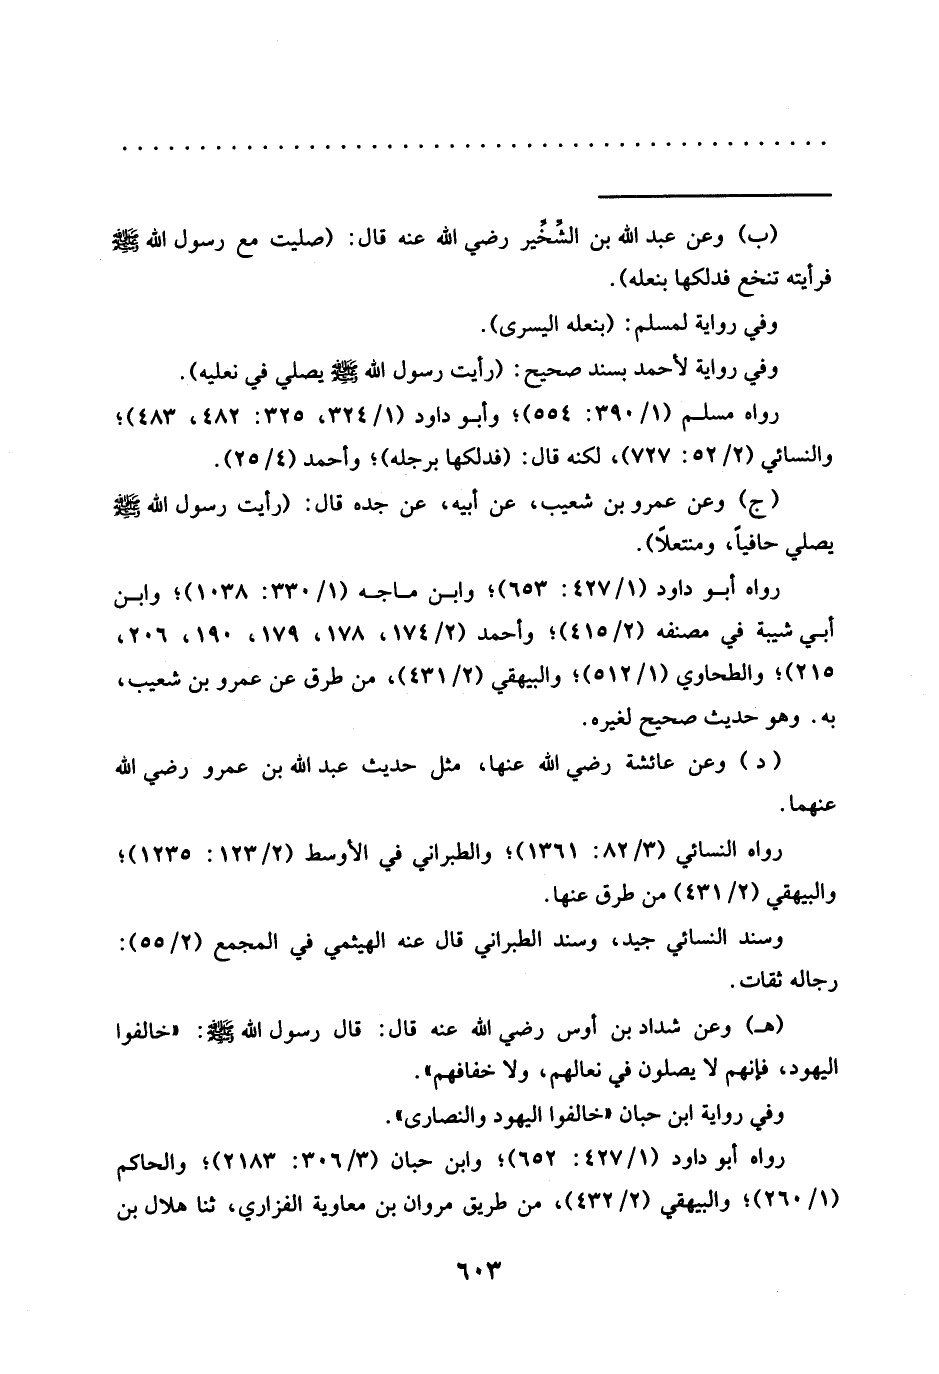 (ب) وعن عبد الله بن الشِّخِّير رضي الله عنه قال: (صليت مع رسول الله ﷺ
فرأيته تنخع فدلكها بنعله).
وفي رواية لمسلم: (بنعله اليسرى).
وفي رواية لأحمد بسند صحيح: (رأيت رسول الله ﷺ يصلي في نعليه).
رواه مسلم (١/ ٣٩٠: ٥٥٤)؛ وأبو داود (١/ ٣٢٤، ٣٢٥: ٤٨٢، ٤٨٣)؛
والنسائي (٢/ ٥٢: ٧٢٧)، لكنه قال: (فدلكها برجله)؛ وأحمد (٤/ ٢٥).
(ج) وعن عمرو بن شعيب، عن أبيه، عن جده قال: (رأيت رسول الله ﷺ
يصلي حافياً، ومنتعلاً).
رواه أبو داود (١/ ٤٢٧: ٦٥٣)؛ وابن ماجه (١/ ٣٣٠: ١٠٣٨)؛ وابن
أبي شيبة في مصنفه (٢/ ٤١٥)؛ وأحمد (٢/ ١٧٤، ١٧٨، ١٧٩، ١٩٠، ٢٠٦،
٢١٥)؛ والطحاوي (١/ ٥١٢)؛ والبيهقي (٢/ ٤٣١)، من طرق عن عمرو بن شعيب،
به. وهو حديث صحيح لغيره.
(د) وعن عائشة رضي الله عنها، مثل حديث عبد الله بن عمرو رضي الله
عنهما.
رواه النسائي (٣/ ٨٢: ١٣٦١)؛ والطبراني في الأوسط (٢/ ١٢٣: ١٢٣٥)؛
والبيهقي (٢/ ٤٣١) من طرق عنها.
وسند النسائي جيد، وسند الطبراني قال عنه الهيثمي في المجمع (٢/ ٥٥):
رجاله ثقات.
(هـ) وعن شداد بن أوس رضي الله عنه قال: قال رسول الله ﷺ: «خالفوا
اليهود، فإنهم لا يصلون في نعالهم، ولا خفافهم».
وفي رواية ابن حبان «خالفوا اليهود والنصارى».
رواه أبو داود (١/ ٤٢٧: ٦٥٢)؛ وابن حبان (٣/ ٣٠٦: ٢١٨٣)؛ والحاكم
(١/ ٢٦٠)؛ والبيهقي (٢/ ٤٣٢)، من طريق مروان بن معاوية الفزاري، ثنا هلال بن
٦٠٣